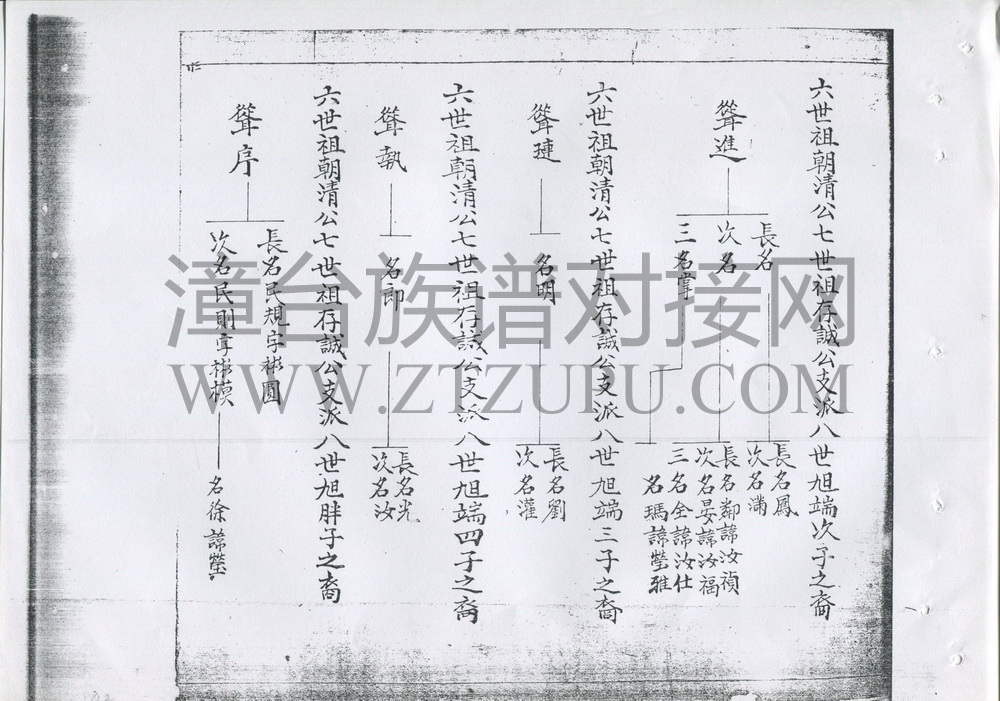 六世祖朝清公七世祖存誠公支派八世旭端次子之裔
聳進
長名
次名
三名掌
長名鳳
次名滿
長名鄰諱汝禎
次名晏諱汝福
三名全諱汝仕
名瑪諱瑩雅
六世祖朝清公七世祖存誠公支派八世旭端三子之裔
聳璉
名明
長名劉
次名灌
六世祖朝清公七世祖存誠公支派八世旭端四子之裔
聳執
名郎
長名光
次名汝
六世祖朝清公七世祖存誠公支派八世旭胖子之裔
聳序
長名民規字彬圓
次名民則字彬模
名徐諱瑩
漳台族谱对接网
WWW.ZTZUPU.COM